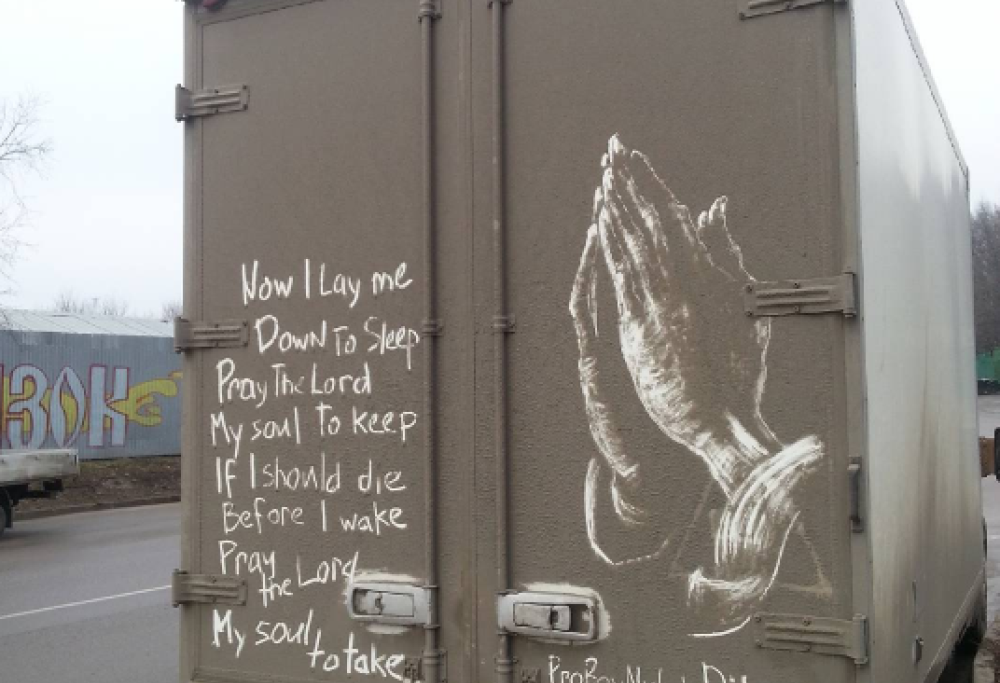 Now I Lay me
Down To Sleep
Pray The Lord
My soul To keep
If I should die
Before I wake
Pray
the Lord
My soul
to take
ЗОК